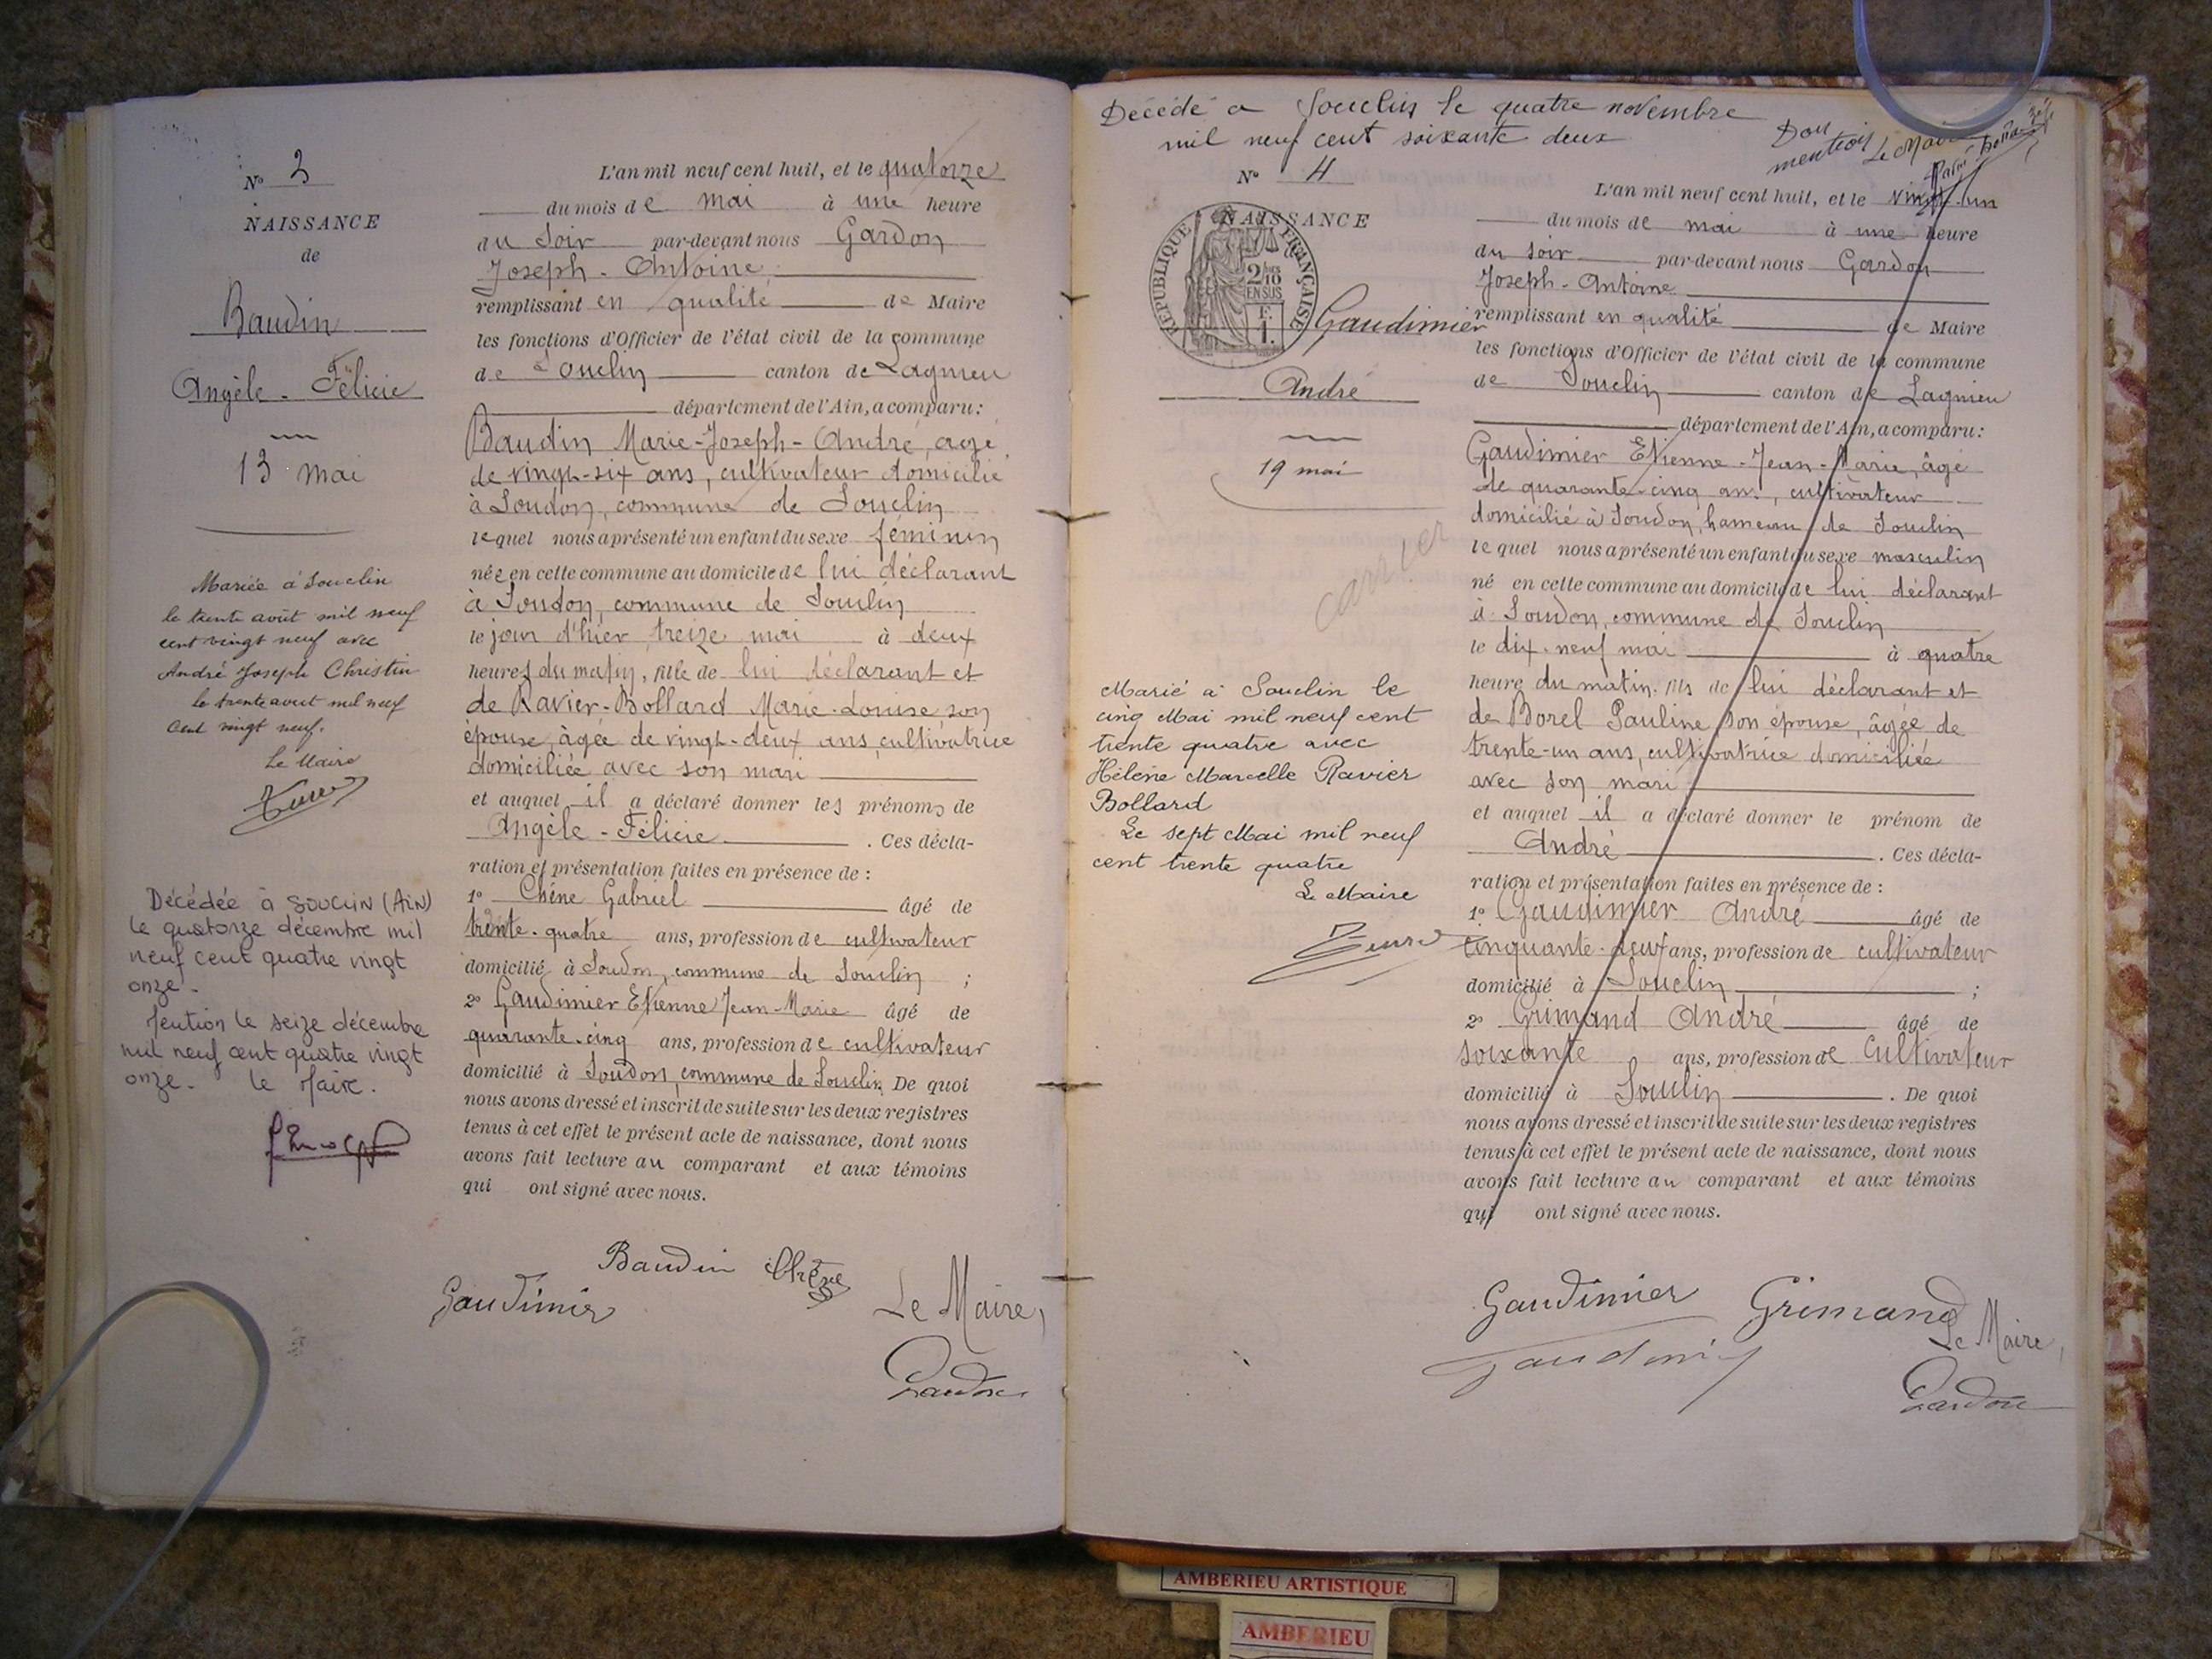 N° 3
NAISSANCE
de
Baudin
Angèle - Félicie
13 mai
Mariée à Souclin
le trente août mil neuf
cent vingt neuf avec
André Joseph Christin
le trente aout mil neuf
cent vingt neuf.
Le Maire
Décédée à SOUCLIN (AiN)
le quatorze décembre mil
neuf cent quatre vingt
onze.
Mention le seize décembre
mil neuf cent quatre vingt
onze. le Maire.
L'an mil neuf cent huit, et le quatorze
du mois de mai à une heure
du soir par-devant nous Gardon
Joseph - Antoine
remplissant en qualité de Maire
les fonctions d'Officier de l'état civil de la commune
de Souclin canton de Lagnieu
département de l'Ain, a comparu :
Baudin Marie-Joseph-André, agé
de vingt-six ans, cultivateur domicilié
à Soudon, commune de Souclin
lequel nous a présenté un enfant du sexe féminin
née en cette commune au domicile de lui déclarant
à Soudon, commune de Souclin
le jour d'hier treize mai à deux
heures du matin, fille de lui déclarant et
de Ravier-Bollard Marie-Louise son
épouse, âgée de vingt-deux ans, cultivatrice
domiciliée avec son mari
et auquel il a déclaré donner les prénoms de
Angèle - Félicie . Ces décla-
ration et présentation faites en présence de :
1° Chêne Gabriel âgé de
trente-quatre ans, profession de cultivateur
domicilié à Soudon, commune de Souclin ;
2° Gaudimier Etienne Jean-Marie âgé de
quarante-cinq ans, profession de cultivateur
domicilié à Soudon, commune de Souclin De quoi
nous avons dressé et inscrit de suite sur les deux registres
tenus à cet effet le présent acte de naissance, dont nous
avons fait lecture au comparant et aux témoins
qui ont signé avec nous.
Baudin Chêne
Gaudimier Le Maire,
Gardon
Décédé a Souclin le quatre novembre
mil neuf cent soixante deux
Don
mention Le Maire
N° 4
NAISSANCE
REPUBLIQUE FRANÇAISE
2/10
EN SUS
F.
1.
Gaudimier
André
19 mai
carrier
Marié à Souclin le
cinq Mai mil neuf cent
trente quatre avec
Hélène Marcelle Ravier
Bollard
Le sept Mai mil neuf
cent trente quatre
Le Maire
L'an mil neuf cent huit, et le vingt-un
du mois de mai à une heure
du soir par-devant nous Gardon
Joseph-Antoine
remplissant en qualité de Maire
les fonctions d'Officier de l'état civil de la commune
de Souclin canton de Lagnieu
département de l'Ain, a comparu :
Gaudimier Etienne-Jean-Marie, âgé
de quarante-cinq ans, cultivateur
domicilié à Soudon, hameau de Souclin
lequel nous a présenté un enfant du sexe masculin
né en cette commune au domicile de lui déclarant
à Soudon, commune de Souclin
le dix-neuf mai à quatre
heure du matin. fils de lui déclarant et
de Borel Pauline son épouse, âgée de
trente-un ans, cultivatrice domiciliée
avec son mari
et auquel il a déclaré donner le prénom de
André . Ces décla-
ration et présentation faites en présence de :
1° Gaudimier André âgé de
cinquante-neuf ans, profession de cultivateur
domicilié à Souclin ;
2° Grimand André âgé de
soixante ans, profession de cultivateur
domicilié à Souclin . De quoi
nous avons dressé et inscrit de suite sur les deux registres
tenus à cet effet le présent acte de naissance, dont nous
avons fait lecture au comparant et aux témoins
qui ont signé avec nous.
Gaudimier Grimand
Gaudimier Le Maire,
Gardon
AMBERIEU ARTISTIQUE
AMBERIEU